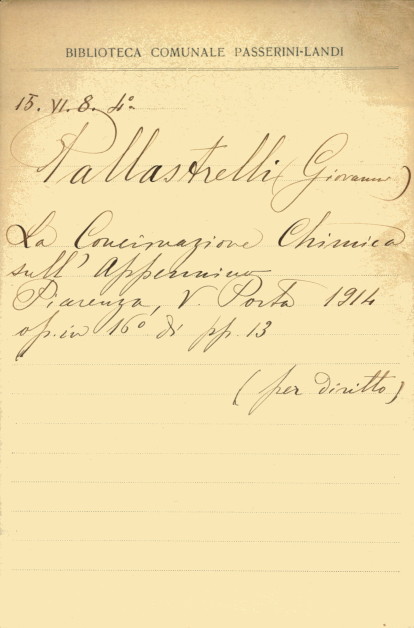 BIBLIOTECA COMUNALE PASSERINI-LANDI
15. VI. 8. 4º
Pallastrelli (Giovanni)
La Concimazione Chimica
sull' Appennino
Piacenza, V. Porta 1914
op. in 16º di pp. 13
(per diritto)